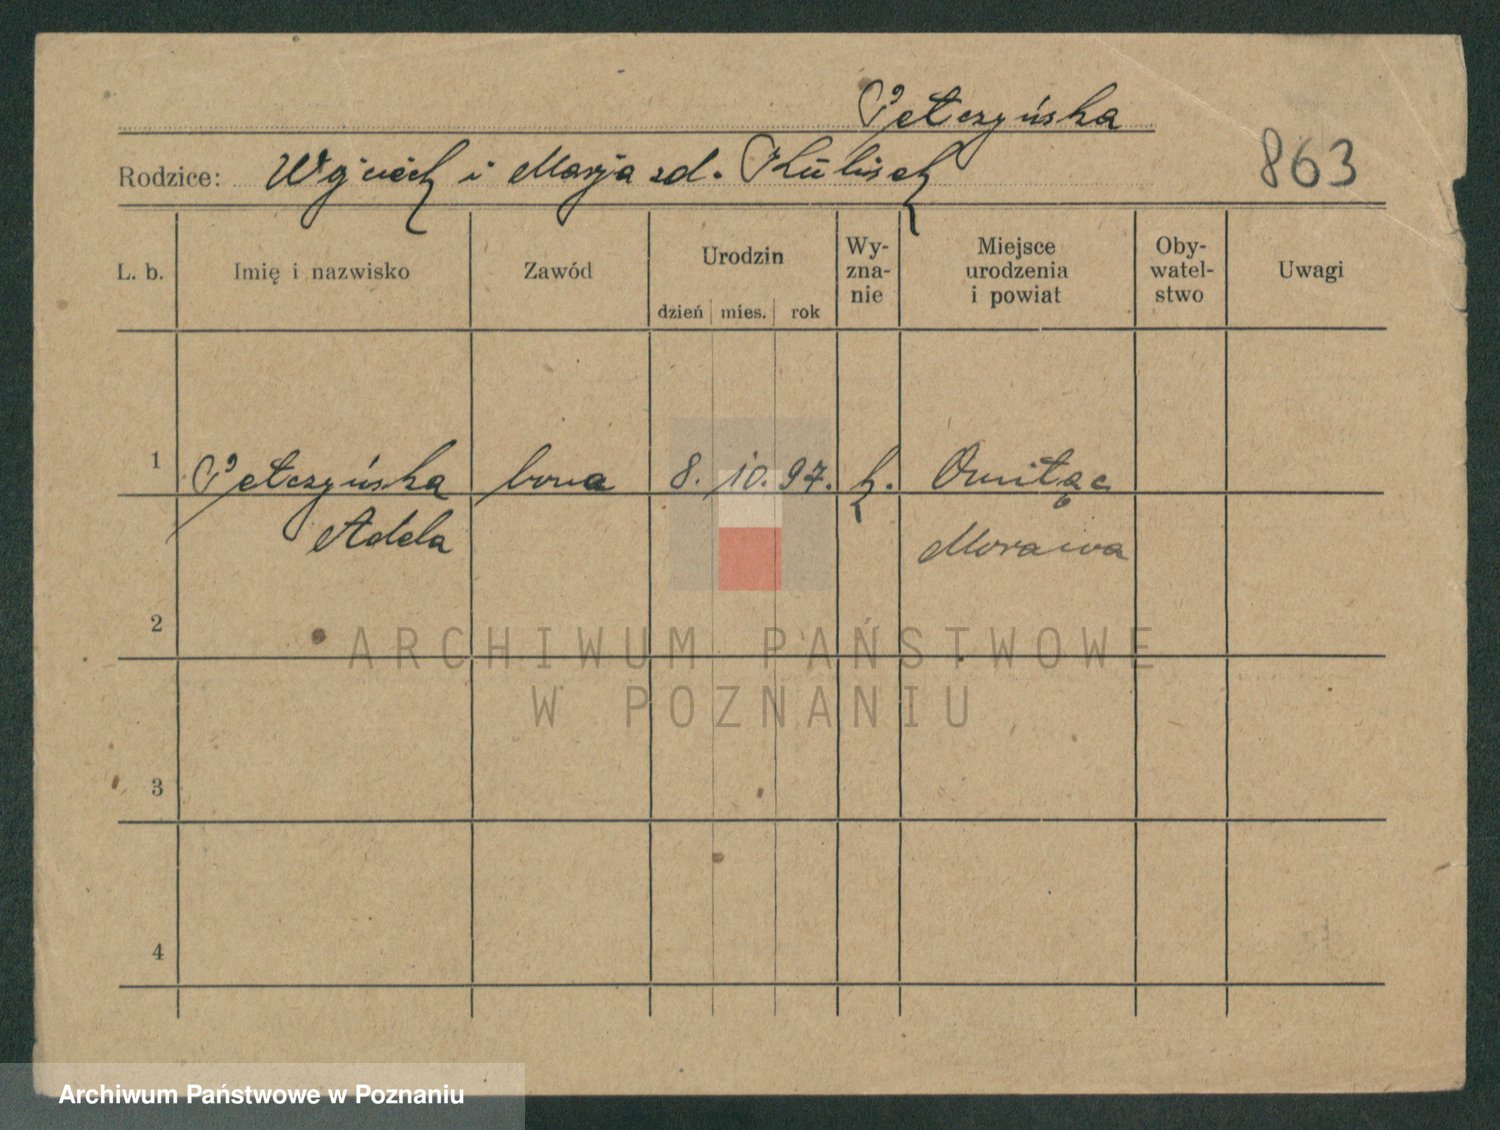 Petczyńska
Rodzice: Wojciech i Marja zd. Kulisch
863
L. b. Imię i nazwisko Zawód Urodzin dzień mies. rok Wy-zna-nie Miejsce urodzenia i powiat Oby-watel-stwo Uwagi
1 Petczyńska bona 8. 10. 97. k. Omitąc
Adela Morawa
2
3
4
ARCHIWUM PAŃSTWOWE
W POZNANIU
Archiwum Państwowe w Poznaniu